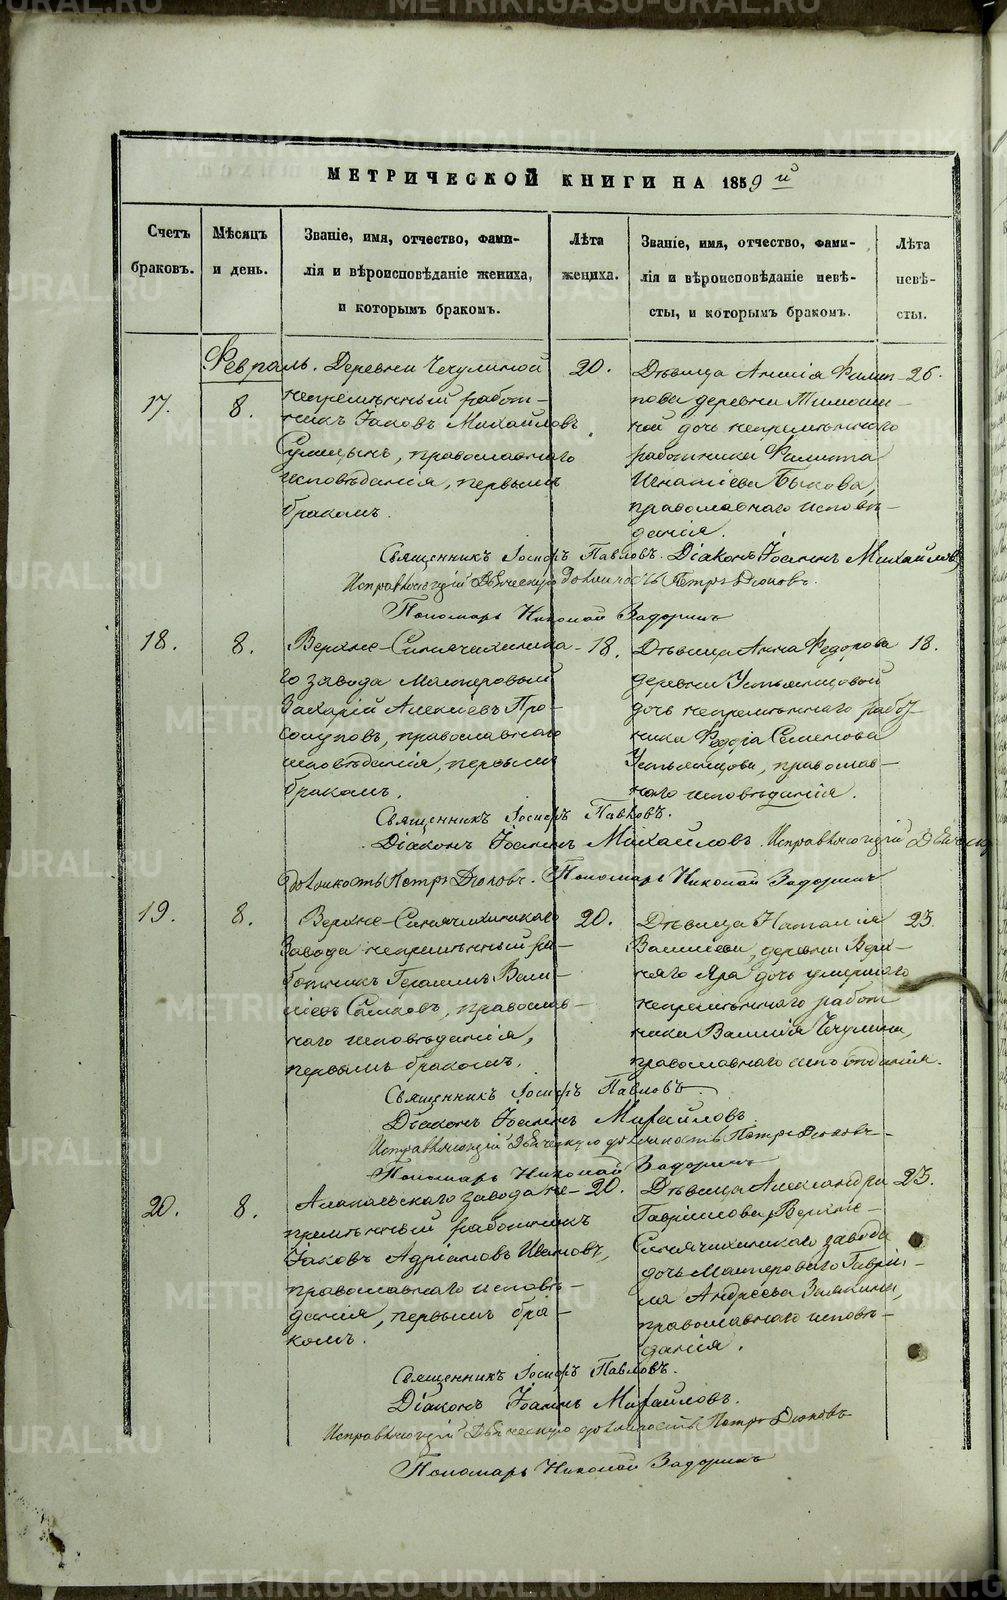 МЕТРИЧЕСКОЙ КНИГИ НА 1859й
Счетъ браковъ.
Мѣсяцъ и день.
Званіе, имя, отчество, фами-
лія и вѣроисповѣданіе жениха,
и которымъ бракомъ.
Лѣта жениха.
Званіе, имя, отчество, фами-
лія и вѣроисповѣданіе невѣ-
сты, и которымъ бракомъ.
Лѣта невѣ-
сты.
Февраль.
17.
8.
Деревни Чечулиной
непремѣнный работ-
никъ Іаковъ Михайловъ
православнаго
исповѣданія, первымъ
бракомъ.
20.
Дѣвица Анисія Филип-
пова деревни Тимоши-
ной дочь непремѣннаго
работника Филиппа
Игнатіева Быкова,
православнаго исповѣ-
данія.
26.
Священникъ Іосифъ Павловъ. Діаконъ Іоаннъ Михайловъ
Исправляющій Дьяческую должность Петръ Дюковъ.
Пономарь Николай Задоринъ
18.
8.
Верхне-Синячихинска-
го завода Мастеровый
Захарій Алексіевъ Про-
скуновъ, православнаго
исповѣданія, первымъ
бракомъ.
18.
Дѣвица Анна Федорова
деревни Устьянцовой
дочь непремѣннаго работ-
ника Федора Семенова
Устьянцова, православ-
наго исповѣданія.
18.
Священникъ Іосифъ Павловъ.
Діаконъ Іоаннъ Михайловъ. Исправляющій Дьяческую
должность Петръ Дюковъ. Пономарь Николай Задоринъ
19.
8.
Верхне-Синячихинскаго
Завода непремѣнный ра-
ботникъ Герасимъ Васи-
ліевъ православ-
наго исповѣданія,
первымъ бракомъ.
20.
Дѣвица Наталія
Василіева, деревни Верх-
няго Яра дочь умершаго
непремѣннаго работ
ника Василія Чечулина,
православнаго исповѣданія.
23.
Священникъ Іосифъ Павловъ.
Діаконъ Іоаннъ Михайловъ.
Исправляющій Дьяческую должность Петръ Дюковъ
Пономарь Николай Задоринъ
20.
8.
Алапаевскаго завода не-
премѣнный работникъ
Іаковъ Адріановъ Ивановъ,
православнаго исповѣ-
данія, первымъ бра-
комъ.
20.
Дѣвица Александра
Гавріилова, Верхне-
Синячихинскаго завода
дочь Мастероваго Гаврі-
ила Андреева
православнаго исповѣ-
данія.
23.
Священникъ Іосифъ Павловъ.
Діаконъ Іоаннъ Михайловъ.
Исправляющій Дьяческую должность Петръ Дюковъ
Пономарь Николай Задоринъ
METRIKI.GASO-URAL.RU